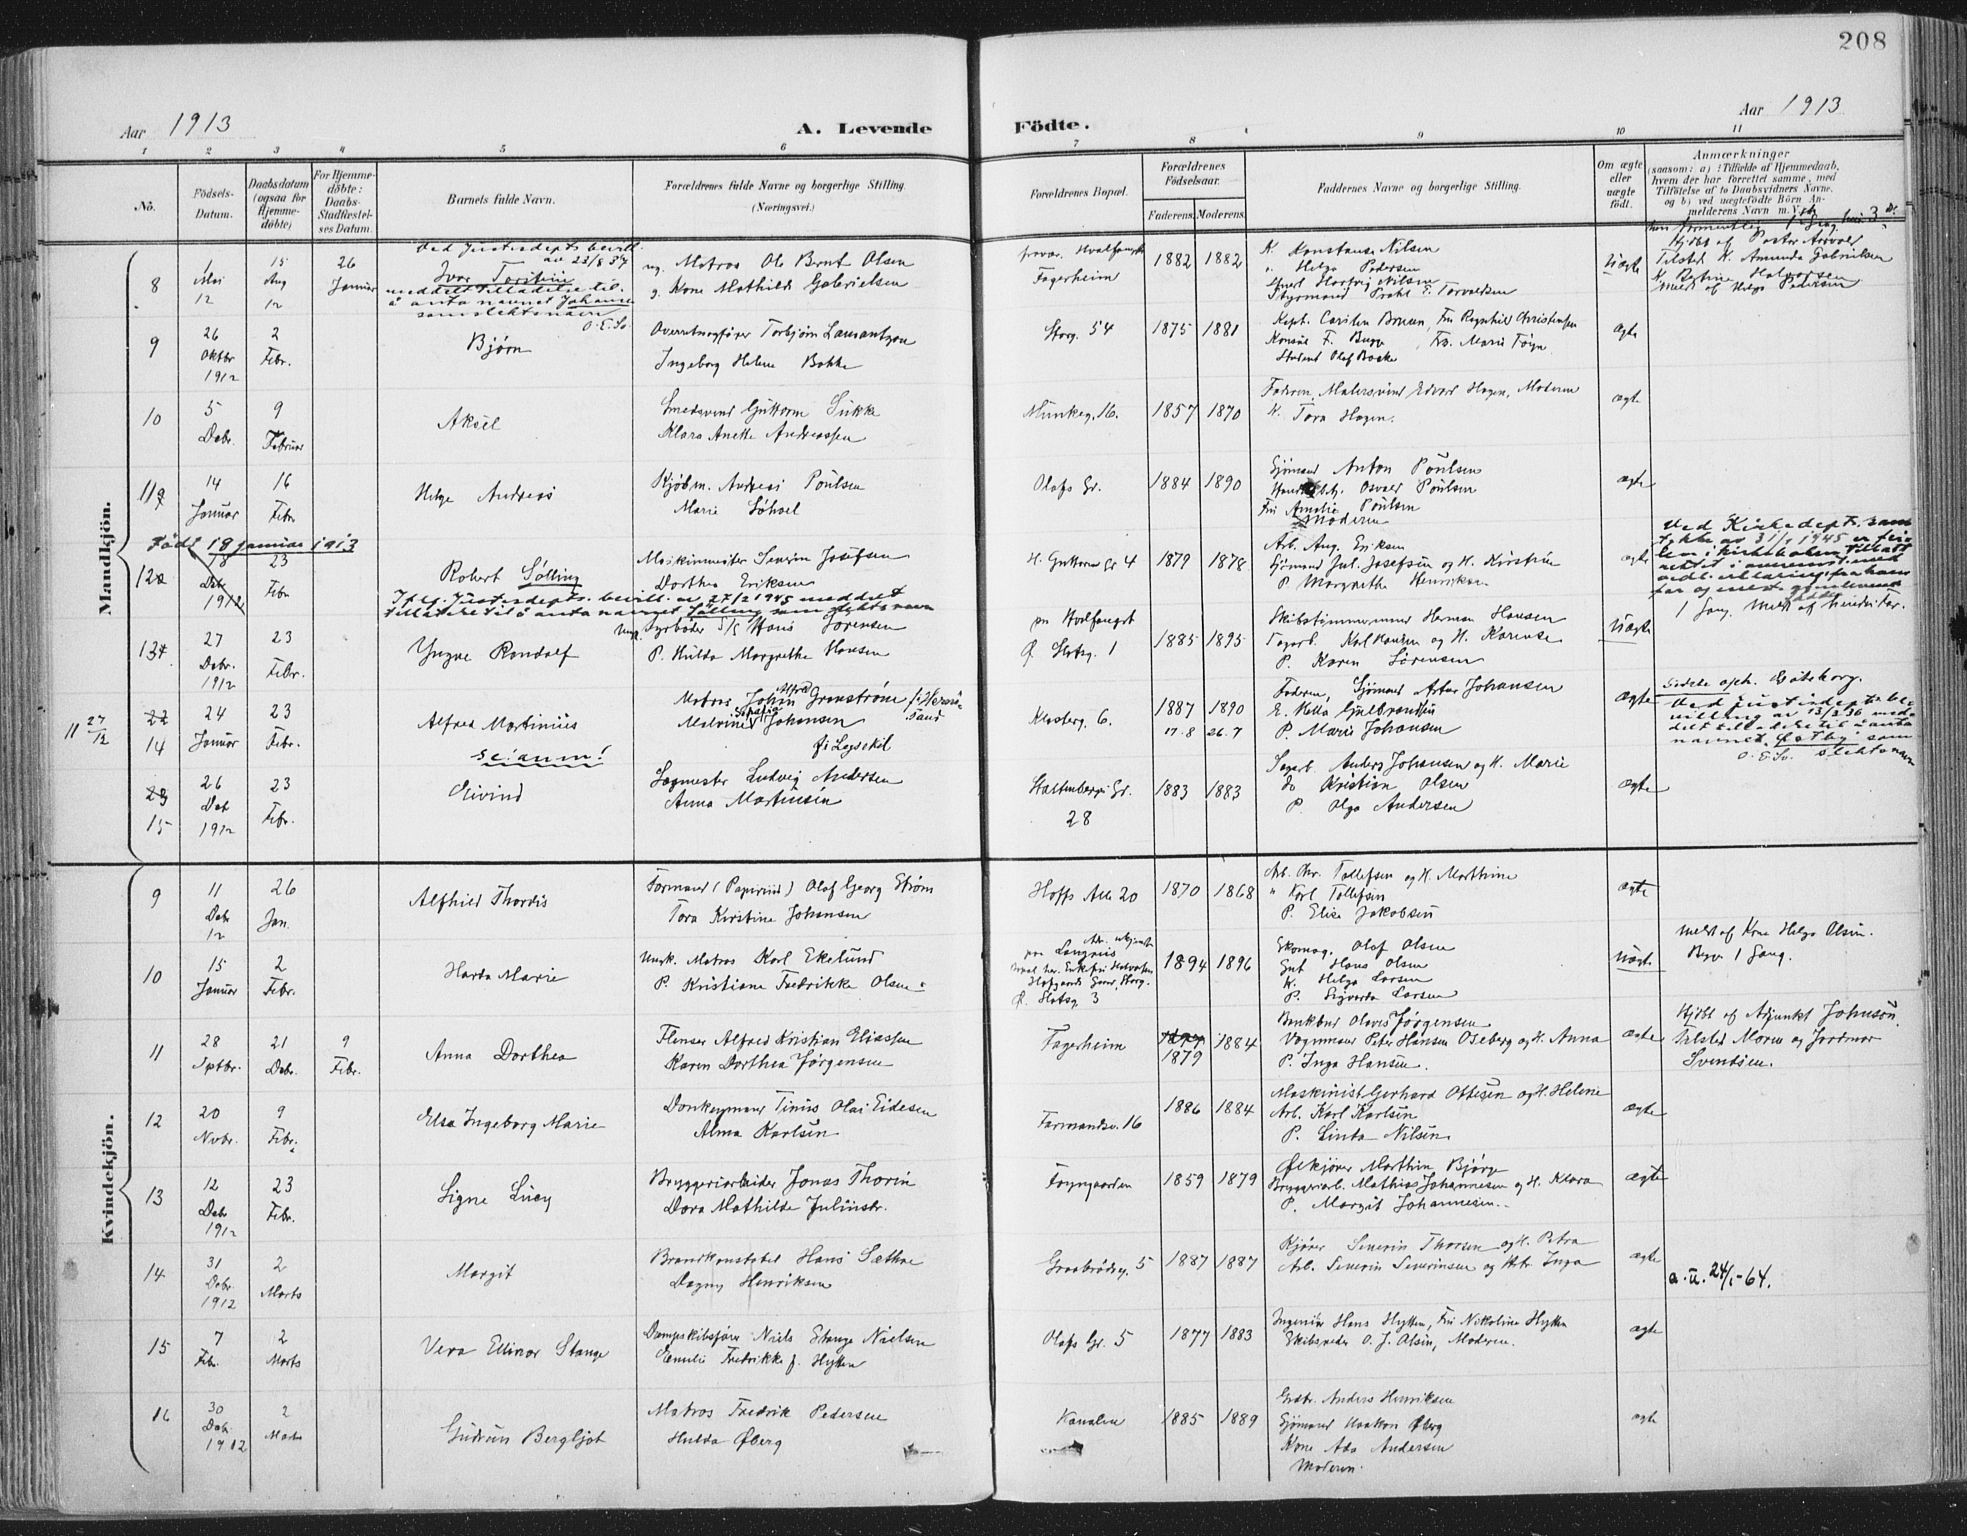 208
Aar 1913
A. Levende Födte.
Aar 1913
1 2 3 4 5 6 7 8 9 10 11
No.
Födsels-Datum.
Daabsdatum (ogsaa for Hjemmedöbte)
For Hjemmedöbte: Daabs-Stadfæstelses Datum.
Barnets fulde Navn.
Forældrenes fulde Navne og borgerlige Stilling. (Næringsvei.)
Forældrenes Bopæl.
Forældrenes Födselsaar.
Faderens. Moderens.
Faddernes Navne og borgerlige Stilling.
Om ægte eller uægte födt.
Anmærkninger
(saasom: a) i Tilfælde af Hjemmedaab, hvem der har forrettet samme, med Tilföielse af to Daabsvidners Navne, og b) ved uægtefödte Börn Anmelderens Navn m. V.
Mandkjön.
8
1 Mai 12
15 Aug 12
26 Januar
Ved Justisdepts bevill. av 23/8 34
Ivar Torstein
meddelt tilladelse til å anta navnet Johansen som slektsnavn
O.E.Sv.
ug. Matros Ole Bernt Olsen
g. Kone Mathilde Gabrielsen
Fagerheim
1882 1882
K. Konstanse Nilsen
" Helga Pedersen
Hartvig Nilsen
Styrmand Torvaldsen
Uægte
Tilsted K. Amunda Gabrielsen
Meldt af Helga Pedersen
9
26 Oktbr 1912
2 Febr.
Bjørn
Overretssagfører Torbjørn Lauantzon
Ingeborg Helene Bakke
Storg. 54
1875 1881
Kapt. Carsten Bruun, Fru Ragnhild Christensen
Konsul F. Bugge, Frk. Marie Føyn
Student Olaf Bakke
ægte
10
5 Debr.
9 Februar
Aksel
Smedsvend Guttorm Sukke
Klara Anette Andreassen
Munkeg. 16.
1857 1870
Faderen, Malersvend Edvard Hagen, Moderen
K. Tora Hagen.
ægte
11
14 Januar
16 Febr.
Helge Andreas
Kjøbm. Andreas Poulsen
Marie
Olafs Gr.
1884 1890
Sjømand Anton Poulsen
Osvald Poulsen
Fru Amalie Poulsen
Moderen
ægte
Født 18 januar 1913
12
18 Debr 1912
23 Febr
Robert Sølling
Ifølge Justisdepts. bevill. av 27/2 1945 meddelt tillatelse til å anta navnet Sølling som slektsnavn
Maskinmester Severin Josefsen
Dorthea Eriksen
H. Guttorms Gr 4
1879 1878
Arb. Aug. Eriksen
Sjømand Jul. Josefsen og H. Kirstine
P. Margrethe Henriksen
ægte
Ved Kirkedepts. samtykke av 31/1 1945 er feilen i kirkeboken tillatt rettet
13
27 Debr. 1912
23 Febr.
Yngve Randolf
Ungk. Fyrbøder S/S Hans Sørensen
P. Hulda Margrethe Hansen
paa Hvalfangst
Ø. Slotsg. 1
1885 1895
Skibstømmermand Herman Hansen
Karl Hansen og H. Karense
P. Karen Sørensen
Uægte
1 Gang. Meldt af hendes Far.
11 27/12
22
14
24 Januar
23 Febr.
Alfred Martinius
se: anm!
Matros Johan Alfred Granstrøm f. i Hernösand
Malvine Johansen
f i Lysekil
Klosterg. 6.
1887 1890
17.8 26.7
Faderen, Sjømand Artur Johansen
E. Hella Gulbrandsen
P. Marie Johansen
ægte
Sidste oph. Gøteborg.
Ved justisdepts bevilling av 13/3 36 meddelt tilladelse til å anta navnet "Østby" som slektsnavn
O.E.Sv.
23
15
26 Deb 1912
23 Febr.
Eivind
Sagmester Ludvig Andersen
Anna Martinsen
Haltenbergs Gr. 28
1883 1883
Sagarb. Anders Johansen og H. Marie
Do Kristian Olsen
P. Olga Andersen
ægte
Kvindekjön.
9
11 Debr 12
26 Jan.
Alfhild Thordis
Formand (Papirind) Olaf Georg Strøm
Tora Kirstine Johansen
Hoffs Alle 20
1870 1868
Arb. Chr. Tollefsen og H. Marthine
" Karl Tollefsen
P. Elise Jakobsen
ægte
10
15 Januar
2 Febr.
Harda Marie
Ungk. Matros Karl Ekelund
P. Kristiane Fredrikke Olsen
Ø. Slotsg 3
1894 1896
Skomag. Olaf Olsen
Gut Hans Olsen
K. Helga Larsen
P. Sigvarda Larsen
Uægte
Meldt af Kone Helga Olsen.
Begge 1 Gang.
11
28 Sptbr.
21 Debr.
9 Febr.
Anna Dorthea
Flenser Alfred Kristian Eliassen
Karen Dorthea Jørgensen
Fagerheim
1879 1884
Bankbud Olavus Jørgensen
Vognmand Peter Hansen Oseberg og H. Anna
P. Inga Hansen.
ægte
Hjdbt af Adjunkt Johnson.
Tilsted Moren og Jordmor Svendsen.
12
20 Novbr.
9 Febr.
Elsa Ingeborg Marie
Donkeymand Tinius Olai Eidesen
Alma Karlsen
Farmandsv. 16
1886 1884
Maskinist Gerhard Ottesen og H. Helene
Arb. Karl Karlsen
P. Linta Nilsen
ægte
13
12 Debr 1912
23 Febr.
Signe Lucy
Bryggeriarbeider Jonas Thorin
Dora Mathilde Julinstr.
Føyngaarden
1859 1879
Ølkjører Marthin Bjørge
Bryggeriarb. Mathias Johannesen og H. Klara
P. Margit Johannesen.
ægte
14
31 Debr. 1912
2 Marts
Margit
Brandkonstabel Hans Sæthre
Dagny Henriksen
Graabrødrg. 5
1887 1887
Kjører Severin Thorsen og H. Petra
Arb. Severin Severinsen og Hstr. Inga
ægte
a. u. 24/1-64.
15
7 Febr.
2 Marts
Vera Ellinor Stange
Dampskibsfører Niels Stange Nielsen
Emilie Fredrikke f. Hytten
Olafs Gr. 5
1877 1883
Ingeniør Hans Hytten, Fru Nikoline Hytten
Skibsreder O. J. Olsen, Moderen.
ægte
16
30 Debr. 1912
2 Marts
Gudrun Bergljot
Matros Fredrik Pedersen
Hulda Øberg
Kanalen
1885 1889
Grdbr. Anders Henriksen
Sjømand Haakon Øberg
Kone Ada Andersen
Moderen.
ægte